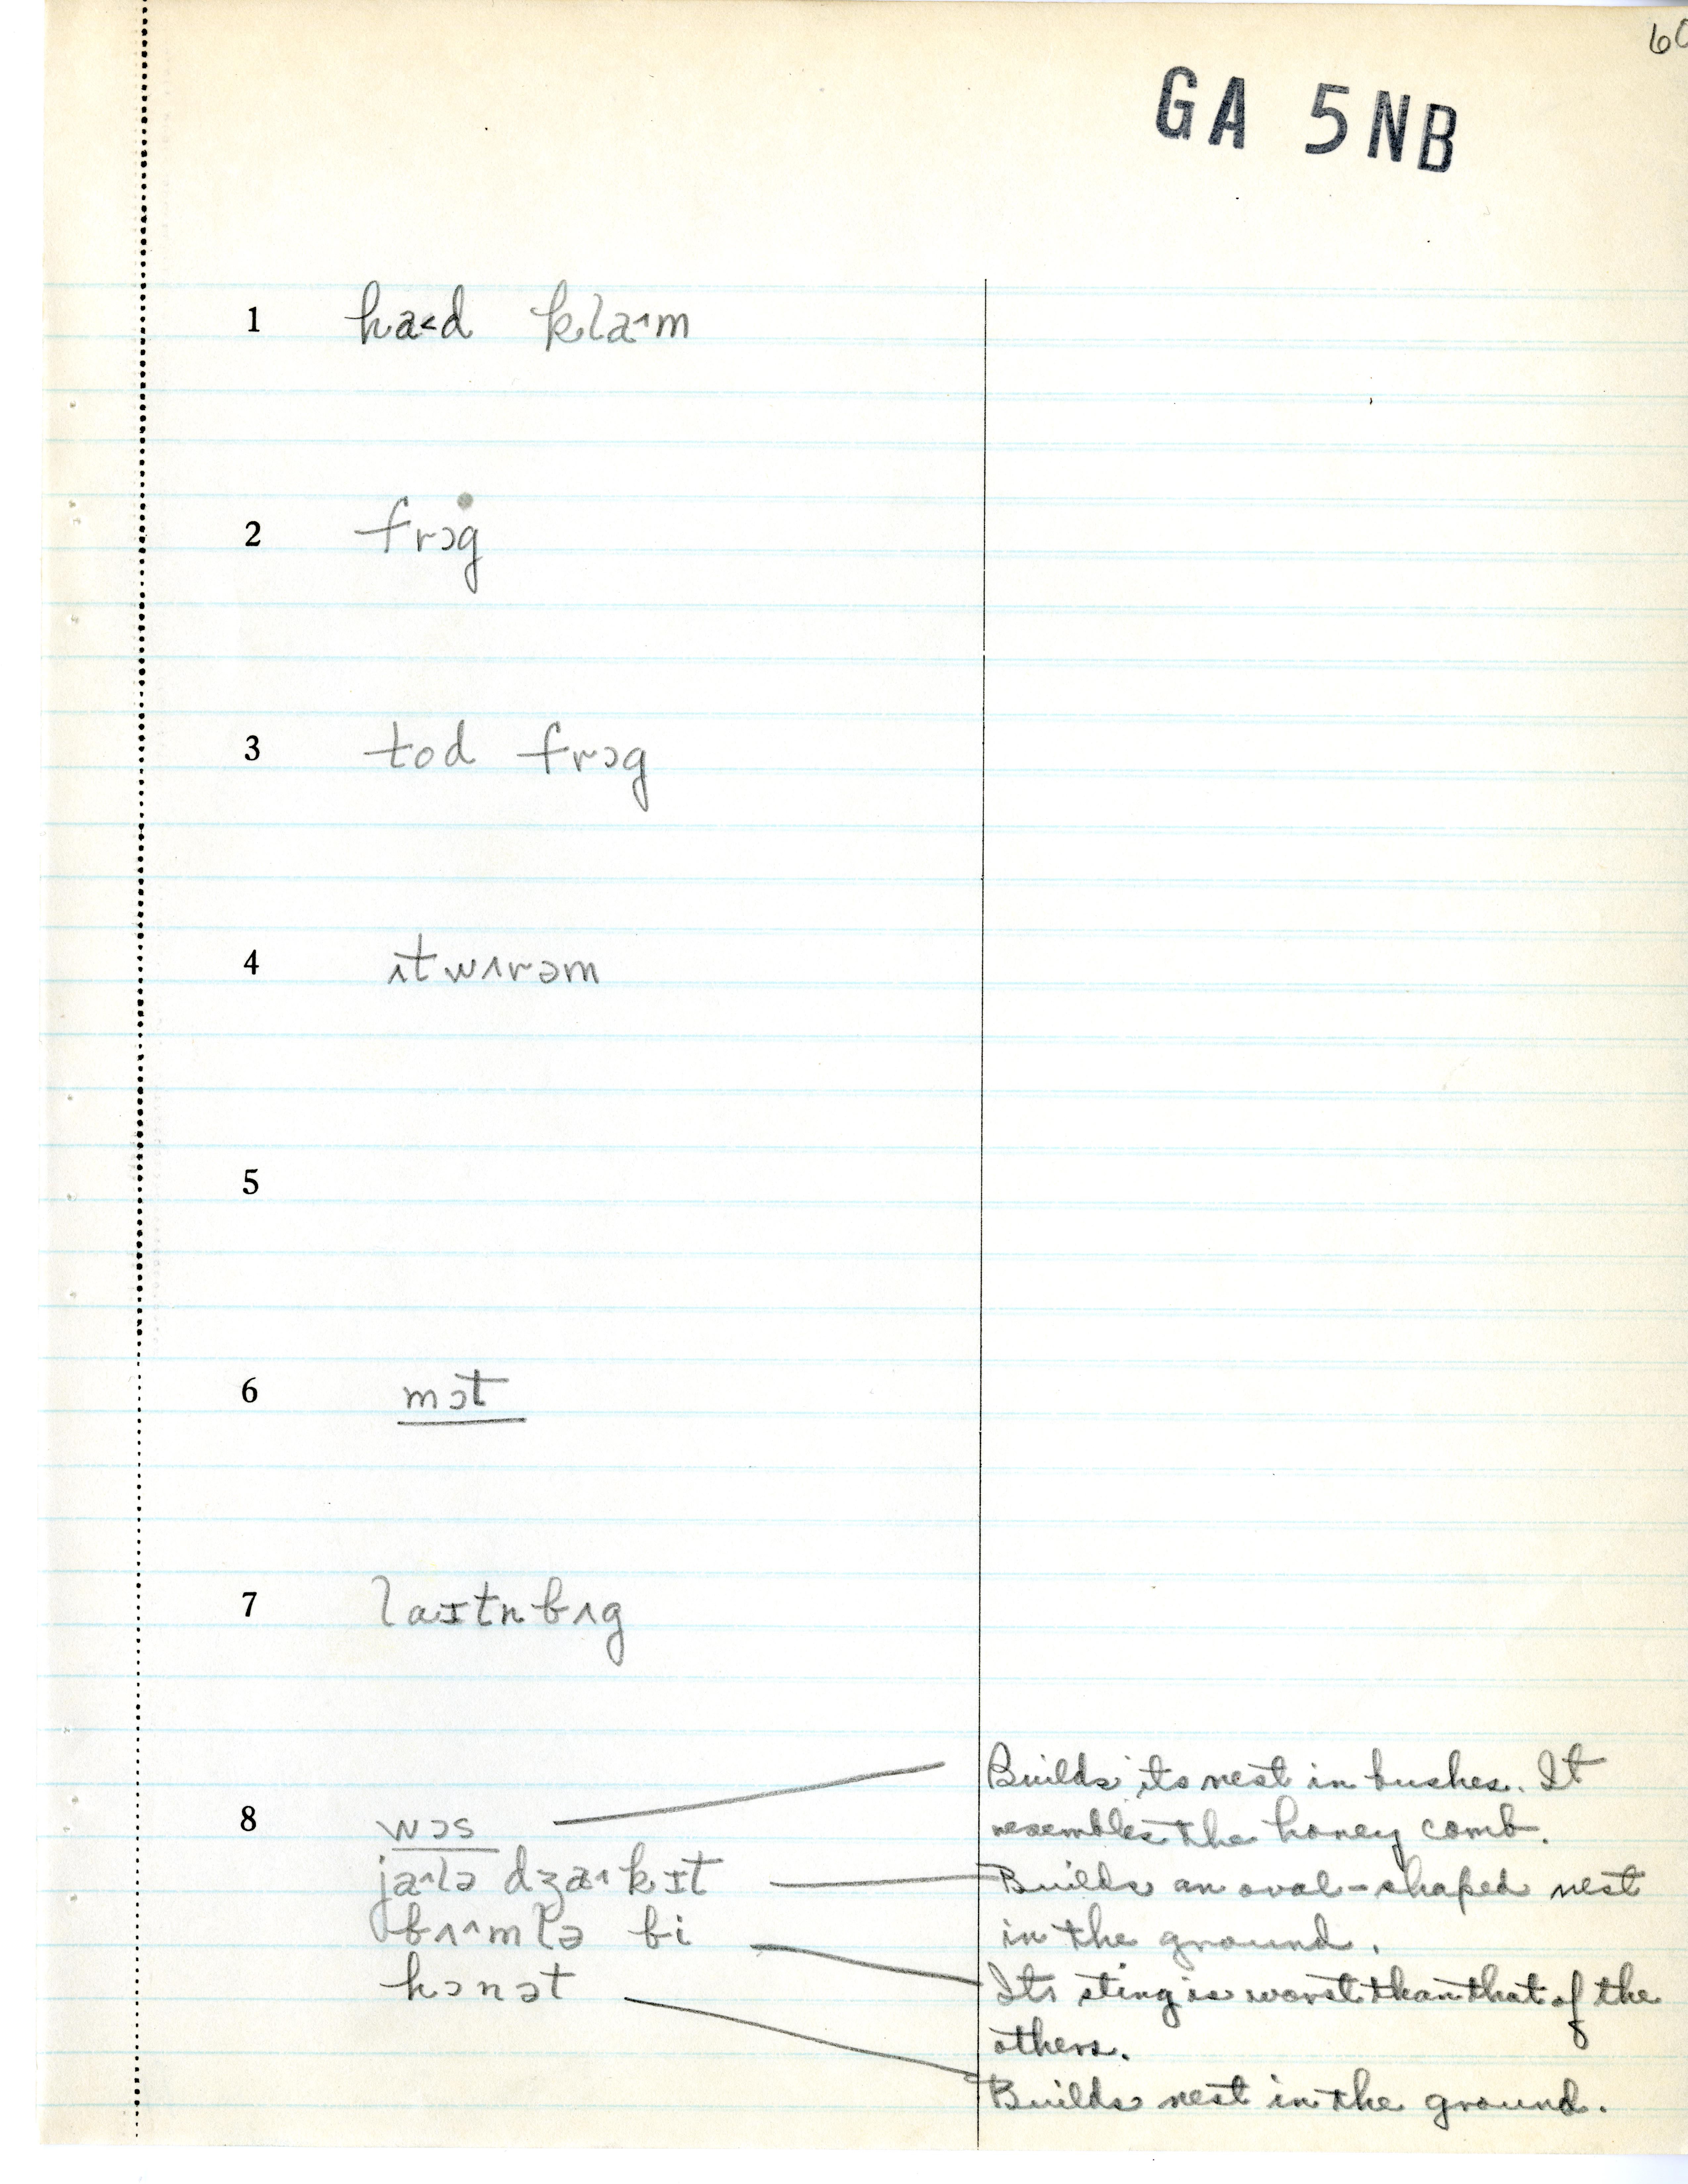 60
GA 5NB
1 ha˂d kla˄m
2 frɔg
3 tod frɔg
4 ɪtwʌrəm
5
6 mɔt
7 laɪtnbʌg
8 wɔs
Builds its nest in bushes. It
resembles the honey comb.
ja˄lə dʒa˄kɪt
Builds an oval-shaped nest
in the ground.
bʌ˄mlə bi
Its sting is worst than that of the
others.
hɔnət
Builds nest in the ground.